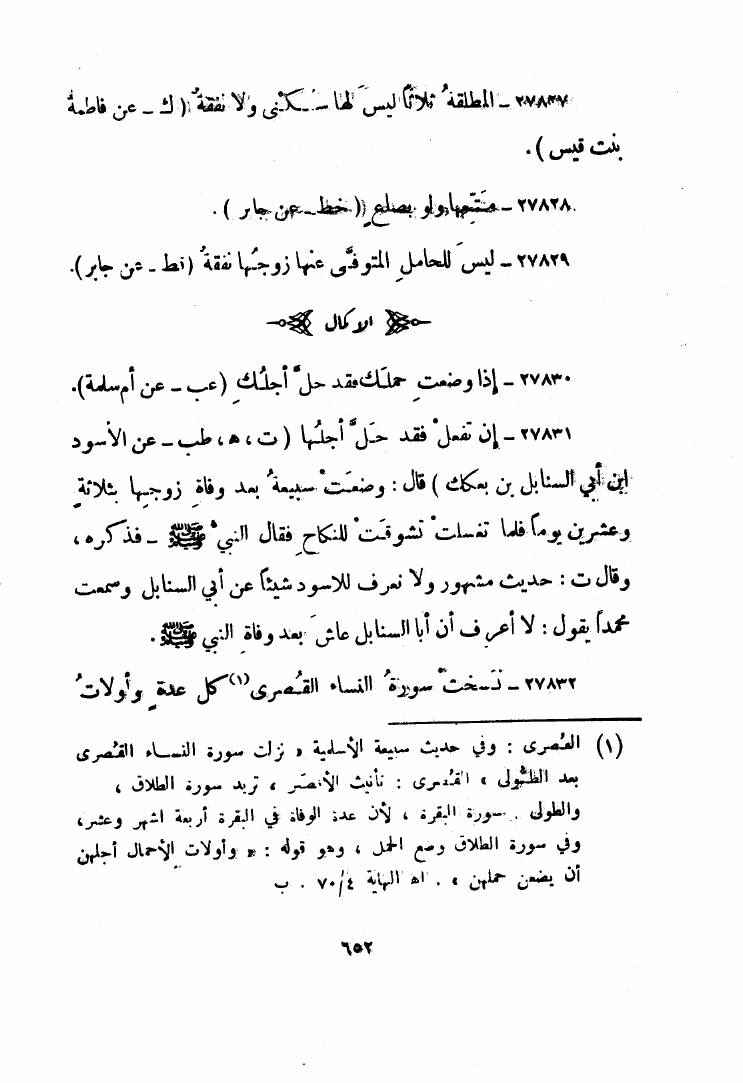 ٢٧٨٢٧ ـ المطلقةُ ثلاثاً ليسَ لها سُـكـْنى ولا نفقةٌ (ك ـ عن فاطمةَ
بنت قيس).
٢٧٨٢٨ ـ مَتِّعها ولو بصاعٍ (خط ـ عن جابر).
٢٧٨٢٩ ـ ليسَ للحاملِ المتوفَّى عنها زوجُها نفقةُ (قط ـ عن جابر).
الاكمال
٢٧٨٣٠ ـ إذا وضعتِ حملَك فقد حلَّ أجلُكِ (عب ـ عن أم سلمة).
٢٧٨٣١ ـ إن تفعلْ فقد حَلَّ أجلُها (ت، ه، طب ـ عن الأسود
ابن أبي السنابل بن بعكك) قال: وضعَتْ سبيعةُ بعد وفاةِ زوجِها بثلاثةٍ
وعشرين يوماً فلما تغسلتْ تشوقَتْ للنكاحِ فقال النبيُّ ﷺ ـ فذكره،
وقال ت: حديث مشهور ولا نعرف للاسود شيئاً عن أبي السنابل وسمعت
محمداً يقول: لا أعرف أن أبا السنابل عاشَ بعد وفاةِ النبي ﷺ.
٢٧٨٣٢ ـ نَسختْ سورةُ النساء القُصرى(١) كل عدةٍ وأولاتُ
(١) القُصرى: وفي حديث سبيعة الأسلمية « نزلت سورة النساء القُصرى
بعد الطُّولى » القُصرى: تأنيث الأقصَر، تريد سورة الطلاق،
والطولى سورة البقرة، لأن عدة الوفاة في البقرة أربعة اشهر وعشر،
وفي سورة الطلاق وضع الحمل، وهو قوله: « وأولات الأحمال أجلهن
أن يضعن حملهن ». اه النهاية ٧٠/٤. ب
٦٥٢